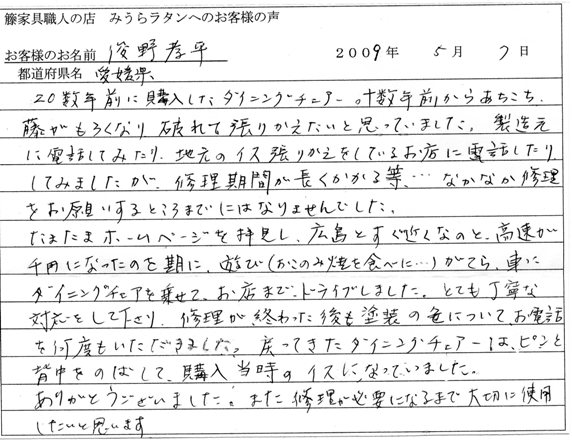 籐家具職人の店 みうらラタンへのお客様の声
お客様のお名前 俊野孝平 2009年 5月 7日
都道府県名 愛媛県
20数年前に購入したダイニングチェアー。十数年前からあちこち
藤がもろくなり破れて張りかえたいと思っていました。製造元
に電話してみたり、地元のイス張りかえをしているお店に電話したり
してみましたが、修理期間が長くかかる等、… なかなか修理
をお願いするところまでにはなりませんでした。
たまたまホームページを拝見し、広島とすぐ近くなのと、高速が
千円になったのを期に、遊び(おこのみ焼を食べに…)がてら、車に
ダイニングチェアを乗せて、お店までドライブしました。とても丁寧な
対応をして下さり、修理が終わった後も塗装の色について、お電話
を何度もいただきました。戻ってきたダイニングチェアーは、ピンと
背中をのばして、購入当時のイスになっていました。
ありがとうございました。また修理が必要になるまで大切に使用
したいと思います